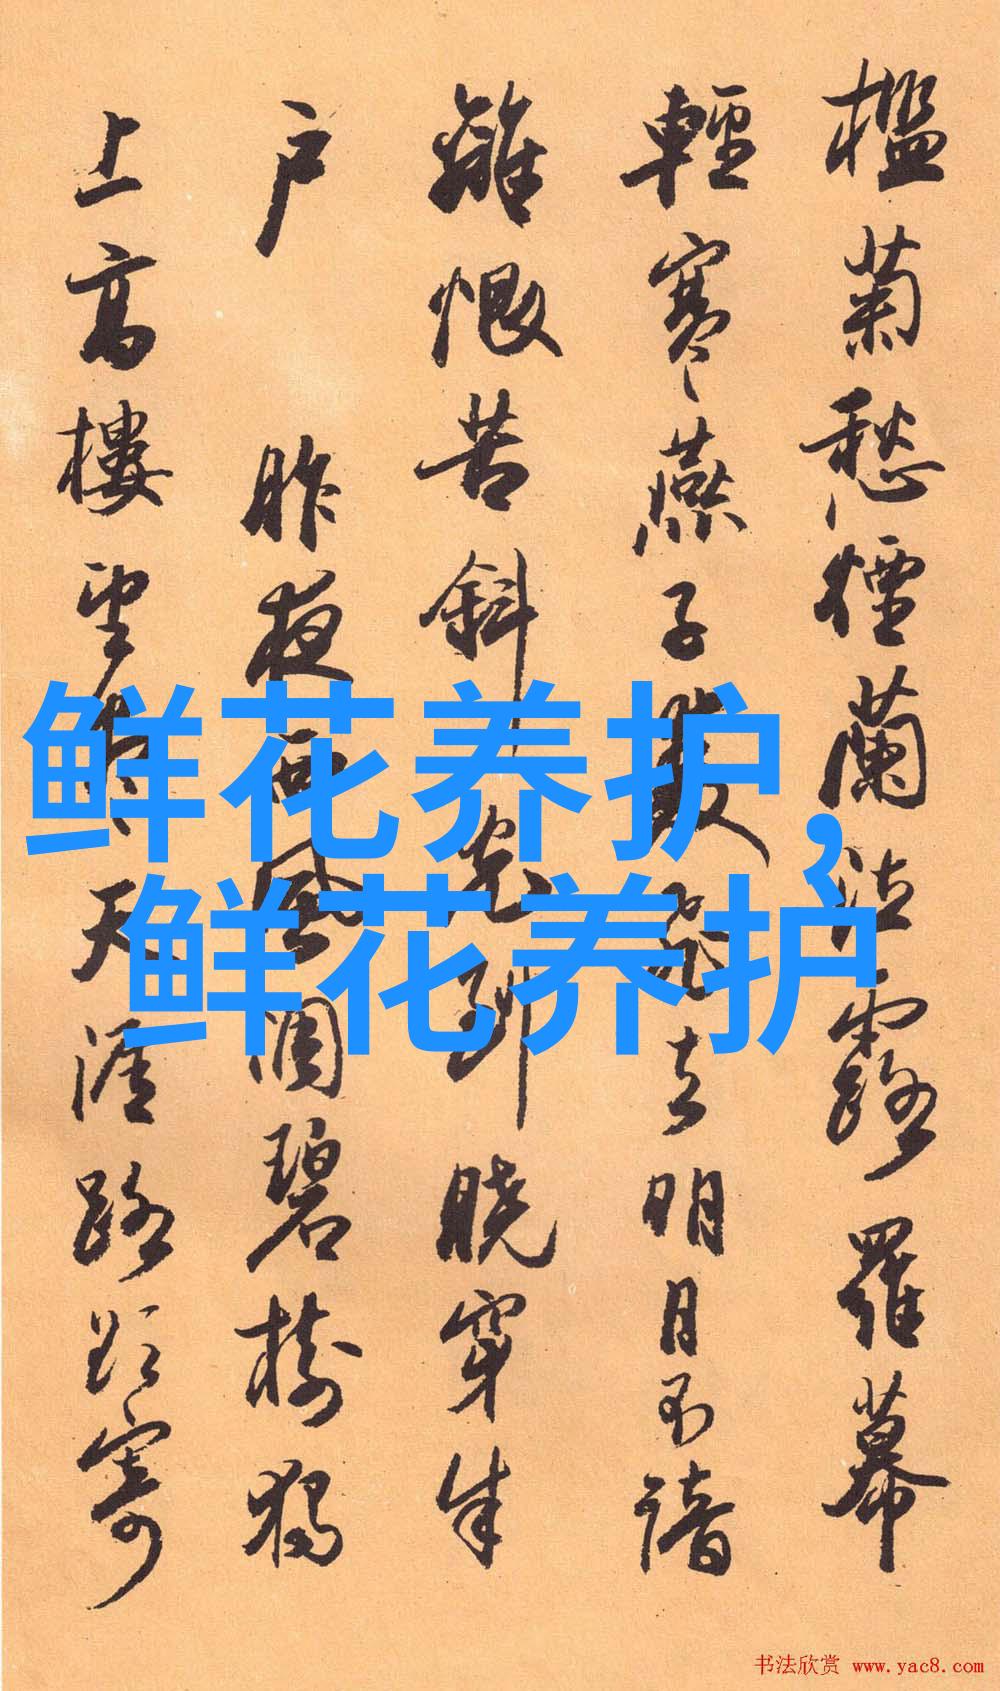 檻菊愁煙蘭泣露羅幕
輕寒燕子雙飛去明月不諳
離恨苦斜光到曉穿朱
户 昨夜西風凋碧樹獨
上高樓望尽天涯路欲寄
鲜花养护，
鲜花养护
书法欣赏 www.yac8.com